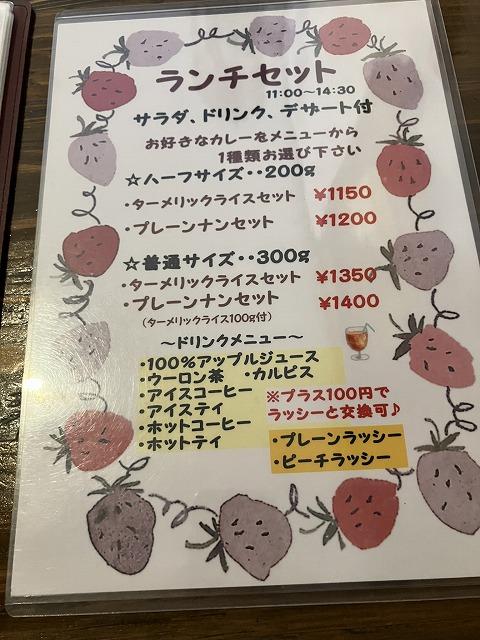 ランチセット
11:00～14:30
サラダ、ドリンク、デザート付
お好きなカレーをメニューから
1種類お選び下さい
☆ハーフサイズ・・200g
・ターメリックライスセット ¥1150
・プレーンナンセット ¥1200
☆普通サイズ・・300g
・ターメリックライスセット ¥1350
・プレーンナンセット ¥1400
(ターメリックライス100g付)
～ドリンクメニュー～
・100%アップルジュース
・ウーロン茶 ・カルピス
・アイスコーヒー
・アイスティ
・ホットコーヒー
・ホットティ
※プラス100円で
ラッシーと交換可♪
・プレーンラッシー
・ピーチラッシー